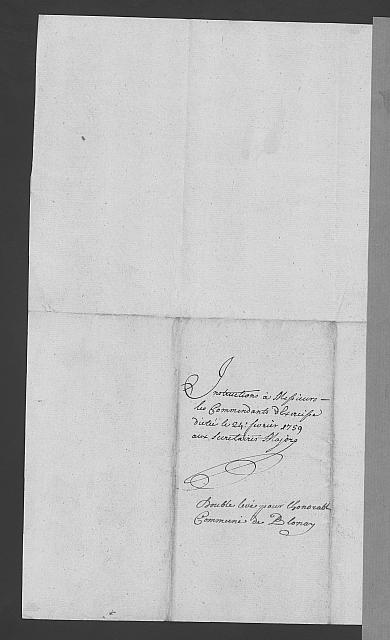 Instructions à Messieurs
les Commendants d'Exercisse
dictée le 24.e fevrier 1759
aux Secretaires Majors
Double levé pour Lhonorable
Commune de Blonay